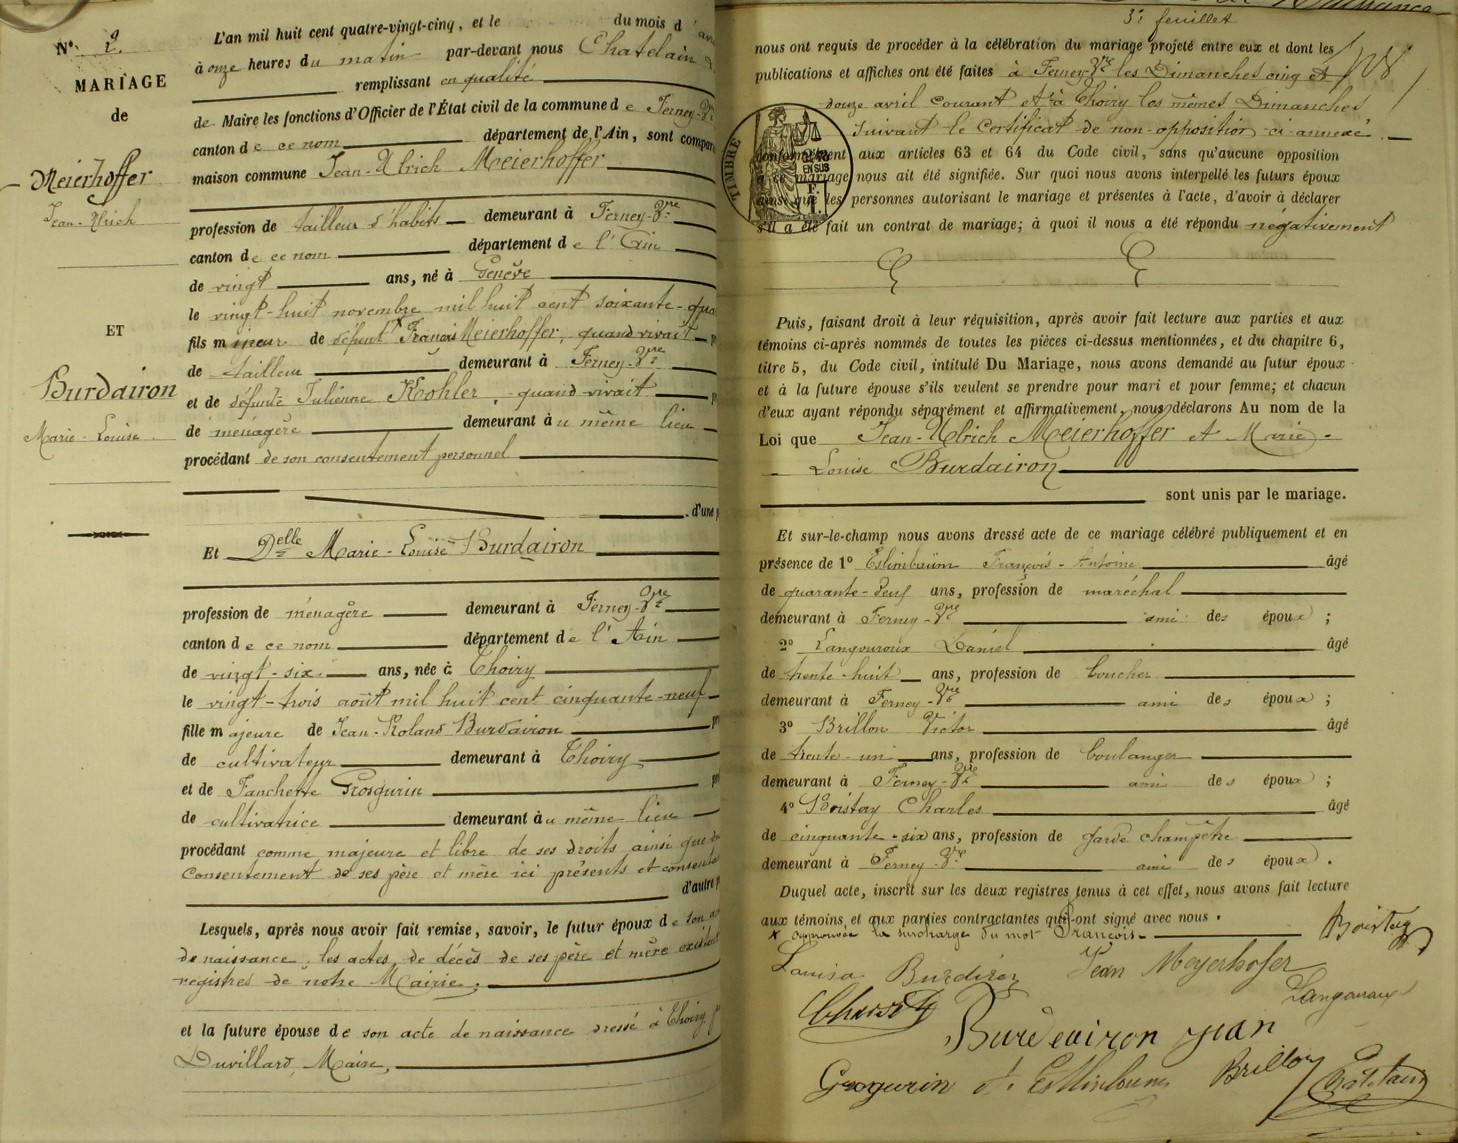 N° 2.
MARIAGE
de
Meierhoffer
Jean-Ulrich
ET
Burdairon
Marie-Louise
L'an mil huit cent quatre-vingt-cinq, et le du mois d'
à onze heures du matin par-devant nous Chatelain
remplissant en qualité
de Maire les fonctions d'Officier de l'État civil de la commune de Ferney-V
canton de ce nom département de l'Ain, sont compar
maison commune Jean-Ulrich Meierhoffer
profession de tailleur d'habits demeurant à Ferney-Vre
canton de ce nom département de l'Ain
de vingt ans, né à Genève
le vingt-huit novembre mil huit cent soixante-qua
fils mineur de défunt François Meierhoffer, quand vivait
de tailleur demeurant à Ferney-Vre
et de défunte Julienne Kohler, quand vivait
de ménagère demeurant au même lieu
procédant de son consentement personnel
d'une p
Et Delle Marie-Louise Burdairon
profession de ménagère demeurant à Ferney-Vre
canton de ce nom département de l'Ain
de vingt-six ans, née à Thoiry
le vingt-trois août mil huit cent cinquante-neuf
fille majeure de Jean-Roland Burdairon
de cultivateur demeurant à Thoiry
et de Fanchette Grosgurin
de cultivatrice demeurant au même lieu
procédant comme majeure et libre de ses droits ainsi que du
consentement de ses père et mère ici présents et consent
d'autre p
Lesquels, après nous avoir fait remise, savoir, le futur époux de son ac
de naissance. les actes de décès de ses père et mère existent
registres de notre Mairie.
et la future épouse de son acte de naissance dressé à Thoiry p
Duvillard, Maire,
3e feuillet
nous ont requis de procéder à la célébration du mariage projeté entre eux et dont les
publications et affiches ont été faites à Ferney-Vre les Dimanches cinq et
douze avril courant et à Thoiry les mêmes Dimanches
suivant le certificat de non-opposition ci-annexé
conformément aux articles 63 et 64 du Code civil, sans qu'aucune opposition
à ce mariage nous ait été signifiée. Sur quoi nous avons interpellé les futurs époux
ainsi que les personnes autorisant le mariage et présentes à l'acte, d'avoir à déclarer
s'il a été fait un contrat de mariage; à quoi il nous a été répondu négativement
TIMBRE
EN SUS
Puis, faisant droit à leur réquisition, après avoir fait lecture aux parties et aux
témoins ci-après nommés de toutes les pièces ci-dessus mentionnées, et du chapitre 6,
titre 5, du Code civil, intitulé Du Mariage, nous avons demandé au futur époux
et à la future épouse s'ils veulent se prendre pour mari et pour femme; et chacun
d'eux ayant répondu séparément et affirmativement, nous déclarons Au nom de la
Loi que Jean-Ulrich Meierhoffer et Marie-
Louise Burdairon
sont unis par le mariage.
Et sur-le-champ nous avons dressé acte de ce mariage célébré publiquement et en
présence de 1° Eslimbaüm François-Antoine âgé
de quarante-deux ans, profession de maréchal
demeurant à Ferney-Vre ami des époux ;
2° Langouroux Daniel âgé
de trente-huit ans, profession de boucher
demeurant à Ferney-Vre ami des époux ;
3° Brillon Victor âgé
de trente-un ans, profession de boulanger
demeurant à Ferney-Vre ami des époux ;
4° Boistay Charles âgé
de cinquante-six ans, profession de garde champêtre
demeurant à Ferney-Vre ami des époux .
Duquel acte, inscrit sur les deux registres tenus à cet effet, nous avons fait lecture
aux témoins et aux parties contractantes qui ont signé avec nous .
x approuvée la surcharge du mot François.
Louisa Burdiron Jean Meyerhofer
Langouroux
Burdeairon jean
Grogurin Brillon Chatelain